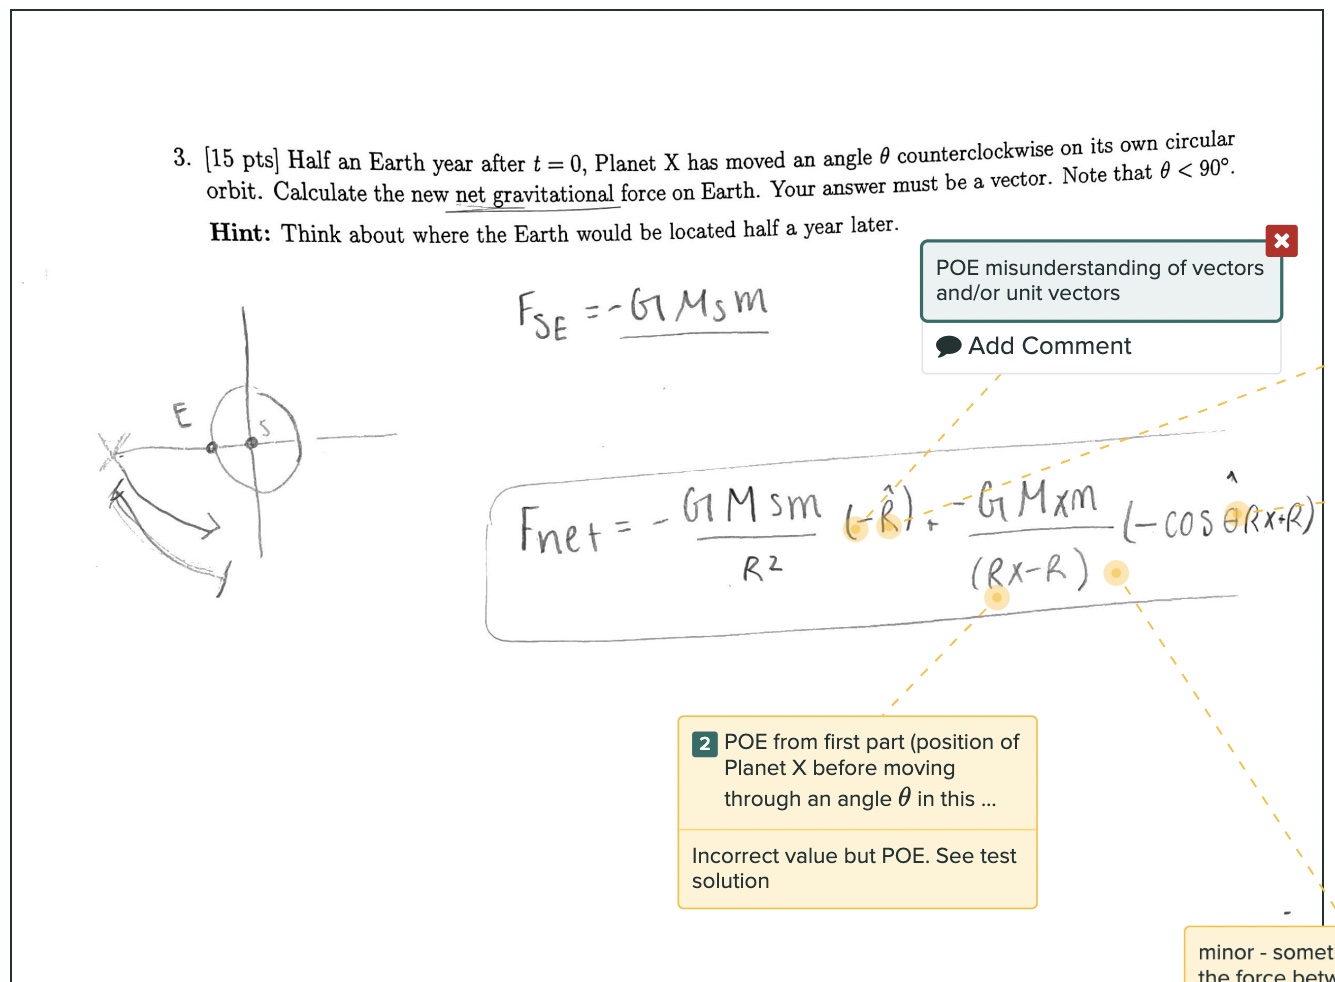 3. [15 pts] Half an Earth year after t = 0, Planet X has moved an angle θ counterclockwise on its own circular
orbit. Calculate the new net gravitational force on Earth. Your answer must be a vector. Note that θ < 90°.
Hint: Think about where the Earth would be located half a year later.
POE misunderstanding of vectors
and/or unit vectors
Add Comment
F_SE = - G M_S m
E
S
X
F_net = - G M_S m / R² (-R̂) + - G M_X m / (R_X - R) (-cos θ̂ R_X + R)
2 POE from first part (position of
Planet X before moving
through an angle θ in this ...
Incorrect value but POE. See test
solution
minor - somet
the force betw